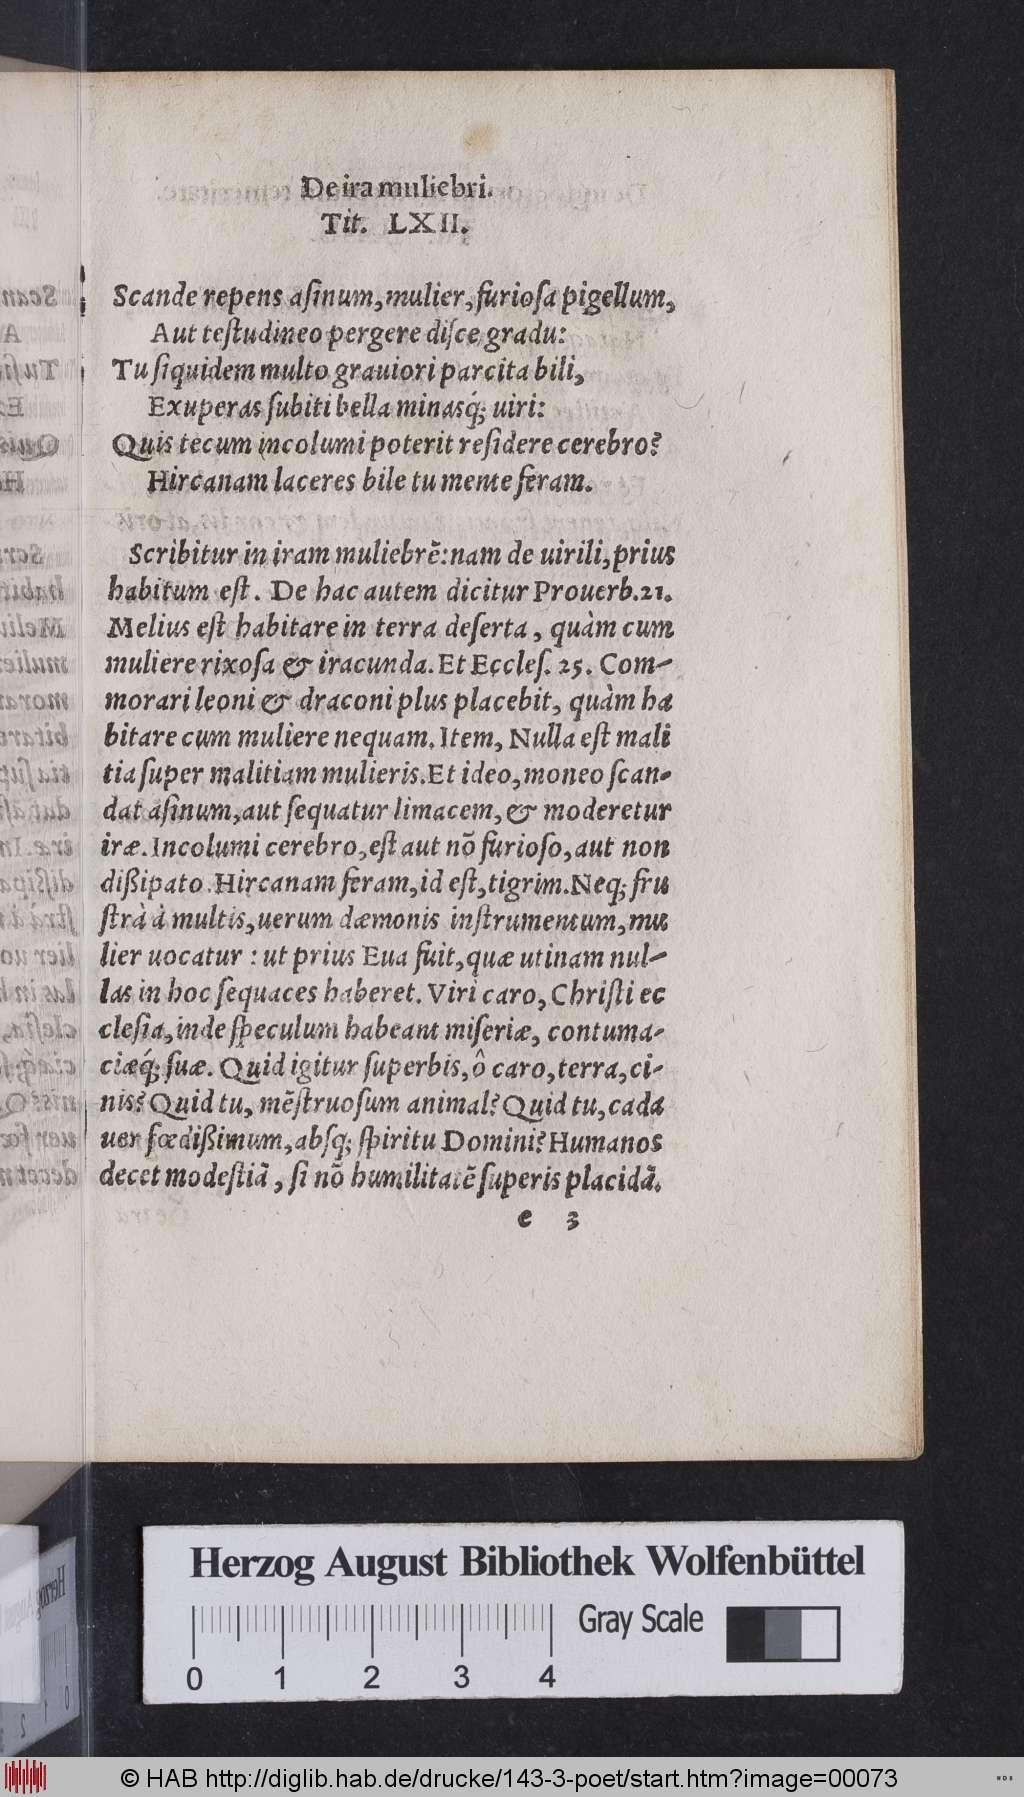 De ira muliebri.
Tit. LXII.
Scande repens aſinum, mulier, furioſa pigellum,
Aut teſtudineo pergere diſce gradu:
Tu ſiquidem multo grauiori parcita bili,
Exuperas ſubiti bella minasq́; uiri:
Quis tecum incolumi poterit reſidere cerebro?
Hircanam laceres bile tumente feram.
Scribitur in iram muliebrē: nam de uirili, prius
habitum eſt. De hac autem dicitur Prouerb. 21.
Melius eſt habitare in terra deſerta, quàm cum
muliere rixoſa & iracunda. Et Eccleſ. 25. Com-
morari leoni & draconi plus placebit, quàm ha
bitare cum muliere nequam. Item, Nulla eſt mali
tia ſuper malitiam mulieris. Et ideo, moneo ſcan-
dat aſinum, aut ſequatur limacem, & moderetur
iræ. Incolumi cerebro, eſt aut nō furioſo, aut non
dißipato. Hircanam feram, id eſt, tigrim. Neq; fru
ſtrà à multis, uerum dæmonis inſtrumentum, mu
lier uocatur: ut prius Eua fuit, quæ utinam nul-
las in hoc ſequaces haberet. Viri caro, Chriſti ec
cleſia, inde ſpeculum habeant miſeriæ, contuma-
ciæq́; ſuæ. Quid igitur ſuperbis, ô caro, terra, ci-
nis? Quid tu, mēſtruoſum animal? Quid tu, cada
uer fœdißimum, abſq; ſpiritu Domini? Humanos
decet modeſtiā, ſi nō humilitatē ſuperis placidā.
e 3
Herzog August Bibliothek Wolfenbüttel
Gray Scale
0 1 2 3 4
© HAB http://diglib.hab.de/drucke/143-3-poet/start.htm?image=00073